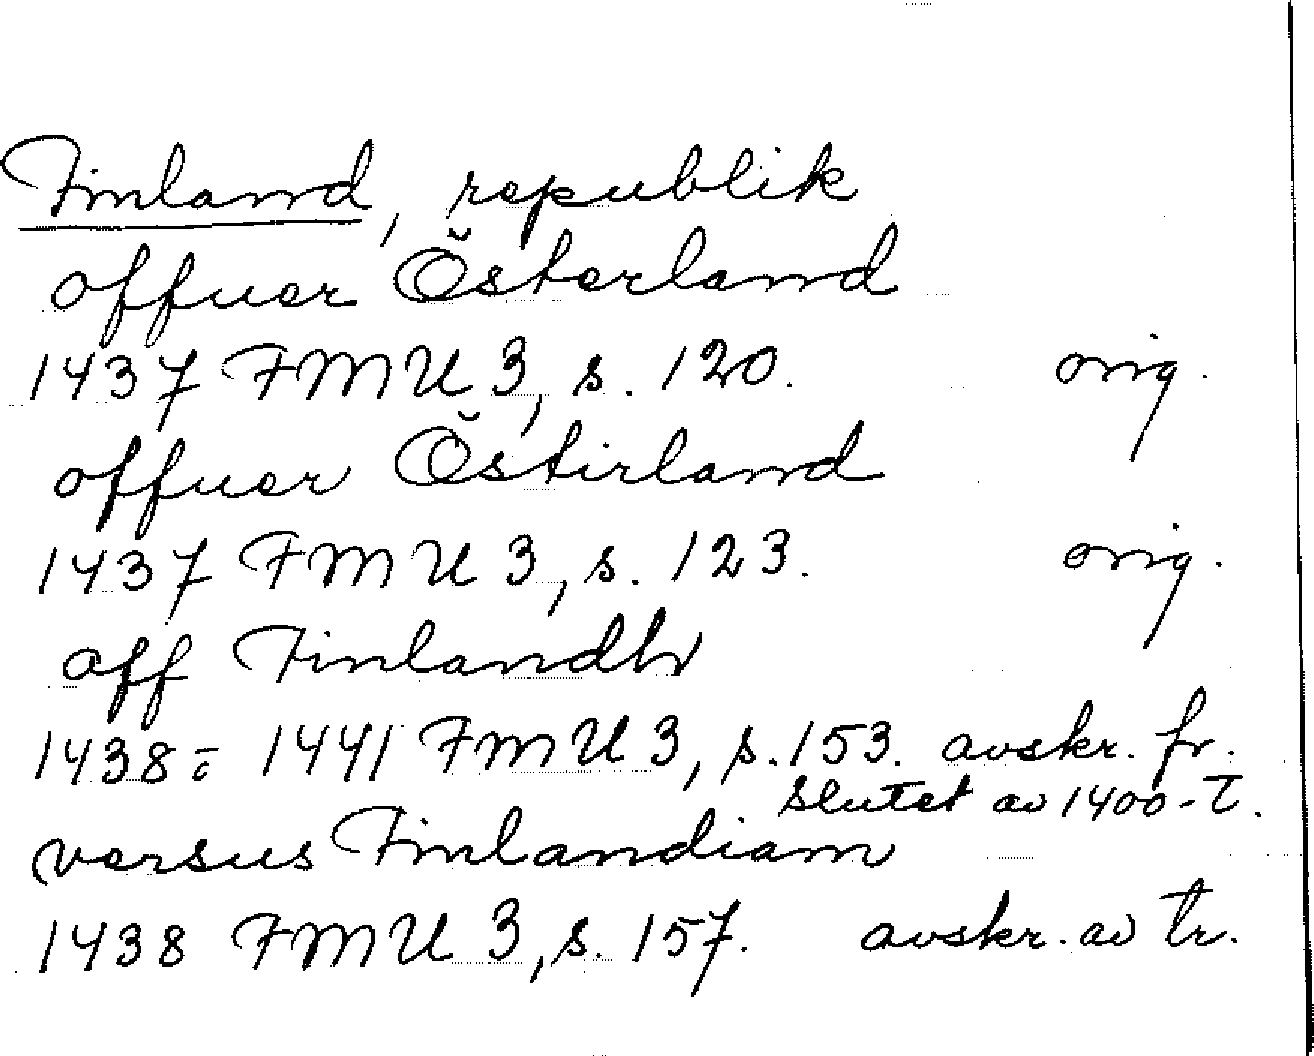 Finland, republik
offuer Österland
1437 FMU 3, s. 120. orig.
offuer Östirland
1437 FMU 3, s. 123. orig.
aff Finlandh
1438 - 1441 FMU 3, s. 153. avskr. fr.
slutet av 1400-t.
versus Finlandiam
1438 FMU 3, s. 157. avskr. av tr.